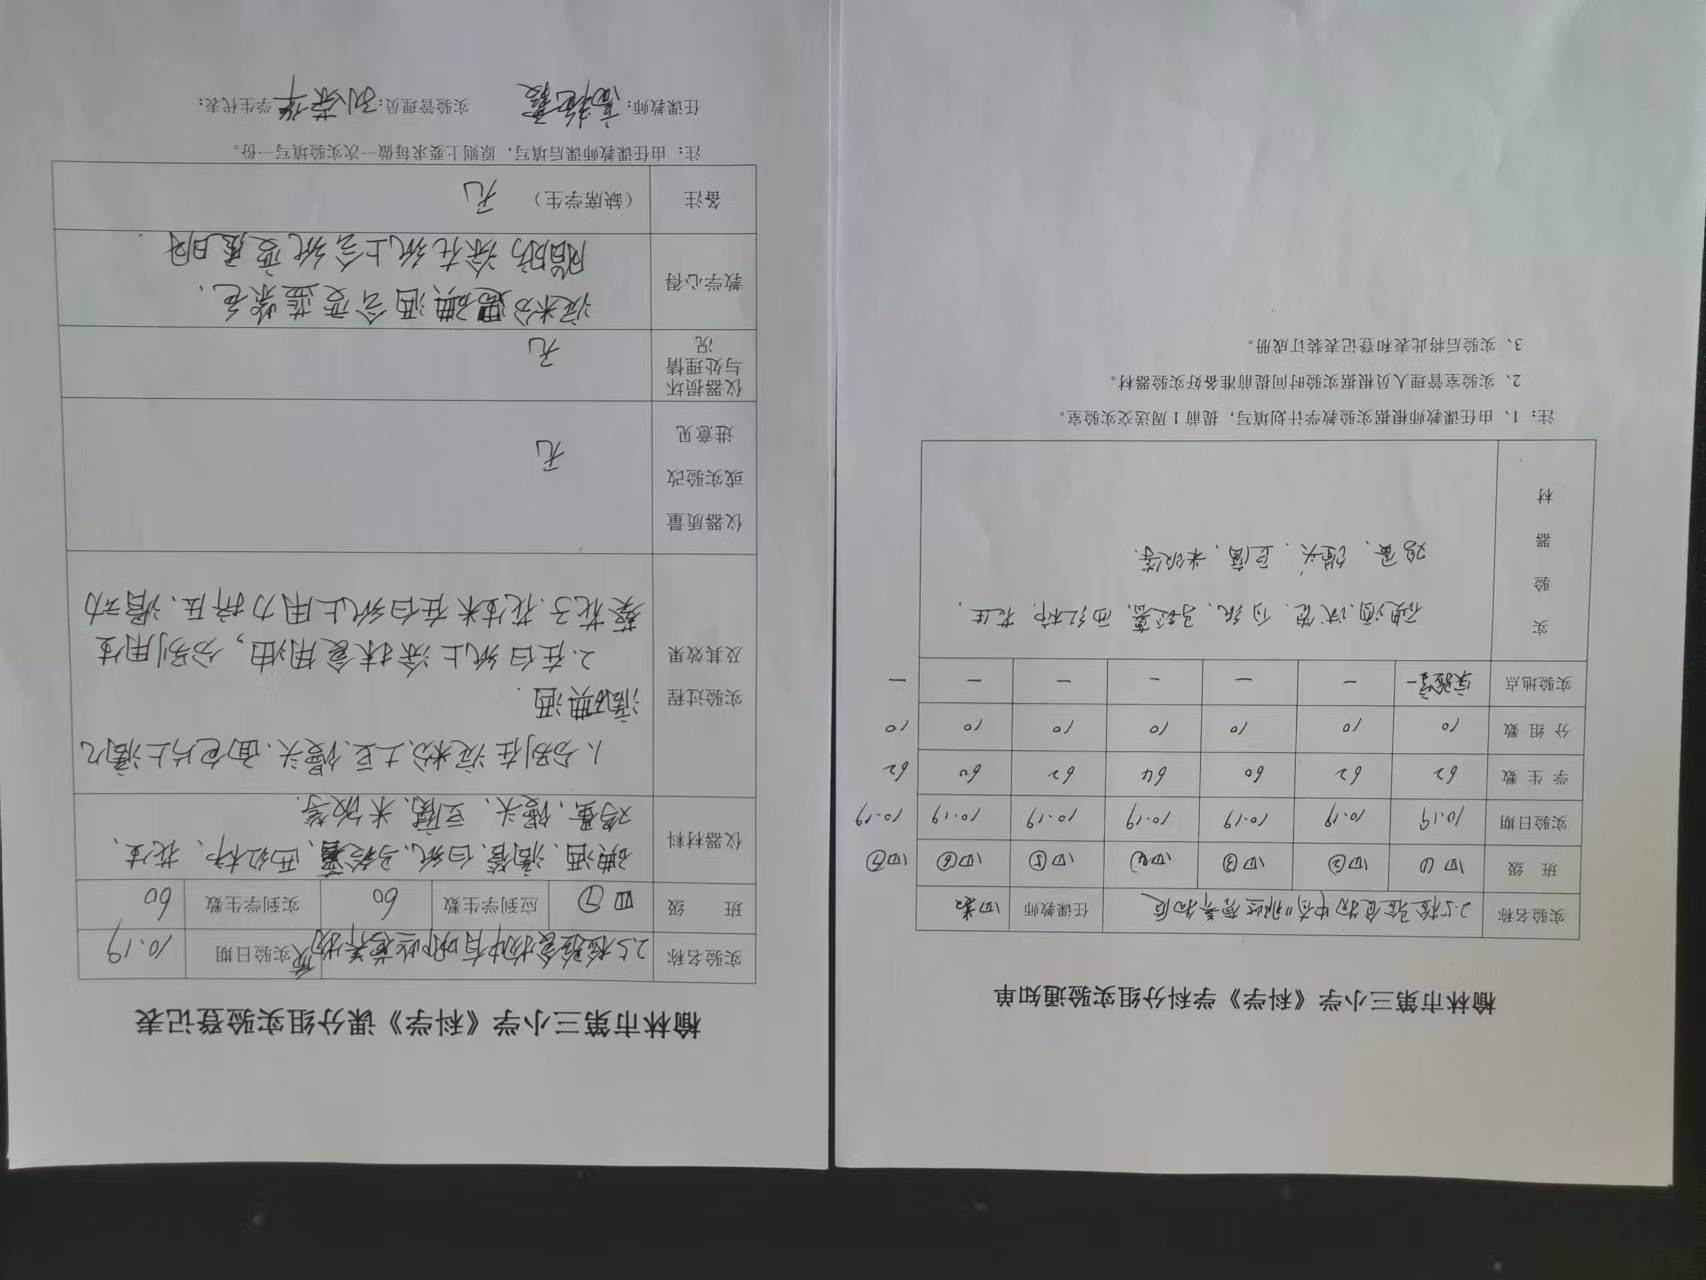 榆林市第三小学《科学》学科分组实验通知单
实验名称 2.5检验食物中有哪些营养物质 任课教师
班 级 四① 四② 四③ 四④ 四⑤ 四⑥ 四⑦
实验日期 10.19 10.19 10.19 10.19 10.19 10.19 10.19
学生数 62 62 60 64 62 60 62
分组数 10 10 10 10 10 10 10
实验地点 实验室一 一 一 一 一 一 一
实验器材
碘酒、试管、白纸、马铃薯、西红柿、花生、
鸡蛋、馒头、豆腐、米饭等.
注：1、由任课教师根据实验教学计划填写，提前1周送交实验室。
2、实验室管理人员根据实验时间提前准备好实验器材。
3、实验后将此表和登记表装订成册。
榆林市第三小学《科学》课分组实验登记表
实验名称 2.5检验食物中有哪些营养物质 实验日期 10.19
班 级 四⑦ 应到学生数 60 实到学生数 60
仪器材料 碘酒、滴管、白纸、马铃薯、西红柿、花生、
鸡蛋、馒头、豆腐、米饭等.
实验过程及其效果
1.分别在淀粉、土豆、馒头、面包片上滴几
滴碘酒.
2.在白纸上涂抹食用油，分别用生
葵花子、花生米在白纸上用力挤压、滑动
仪器质量或实验改进意见 无
仪器损坏与处理情况 无
教学心得 淀粉遇碘酒会变蓝紫色、
脂肪涂在纸上会纸变透明.
备注 （缺席学生） 无
注：由任课教师课后填写，原则上要求每做一次实验填写一份。
任课教师：高艳霞 实验管理员：刘荣华 学生代表：